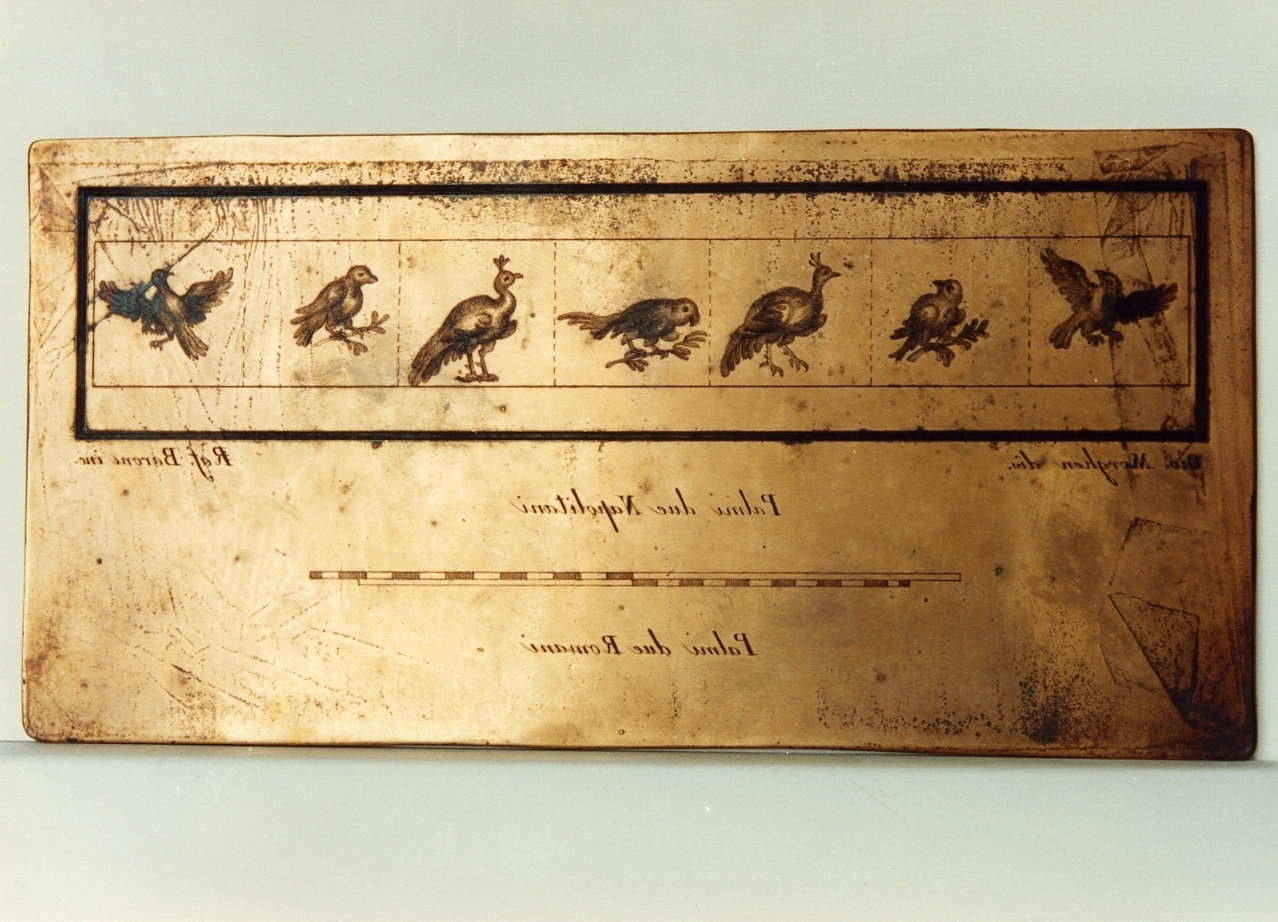 Gio. Morghen dis.
Raf. Baroni inc.
Palmi due Napolitani
Palmi due Romani